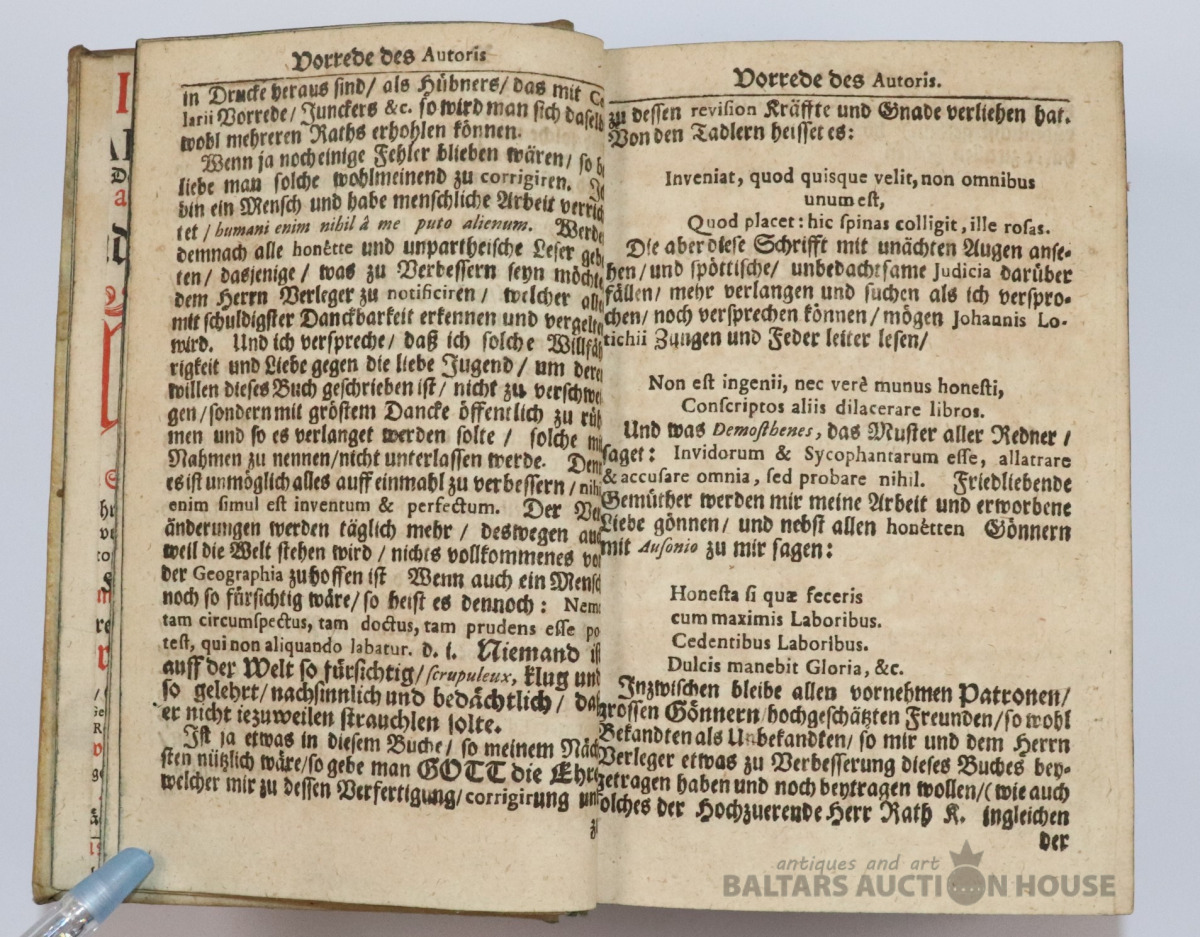 Vorrede des Autoris
in Drucke heraus sind/ als Hübners/ das mit
larii Vorrede/ Junckers &c. so wird man sich daselb
wohl mehreren Raths erhohlen können.
Wenn ja noch einige Fehler blieben wären/ so
liebe man solche wohlmeinend zu corrigiren.
bin ein Mensch und habe menschliche Arbeit verrich
tet/ humani enim nihil â me puto alienum. Werde
demnach alle honètte und unpartheische Leser geb
ten/ dasjenige/ was zu Verbessern seyn möchte
dem Herrn Verleger zu notificiren/ welcher alle
mit schuldigster Danckbarkeit erkennen und vergelte
wird. Und ich verspreche/ daß ich solche Willfäh
rigkeit und Liebe gegen die liebe Jugend/ um dere
willen dieses Buch geschrieben ist/ nicht zu verschwei
gen/ sondern mit gröstem Dancke öffentlich zu rüh
men und so es verlanget werden solte/ solche mi
Nahmen zu nennen/ nicht unterlassen werde. Den
es ist unmöglich alles auff einmahl zu verbessern/ nihi
enim simul est inventum & perfectum. Der Ver
änderungen werden täglich mehr/ deswegen auc
weil die Welt stehen wird/ nichts vollkommenes vo
der Geographia zuhoffen ist Wenn auch ein Mensc
noch so fürsichtig wäre/ so heist es dennoch: Nem
tam circumspectus, tam doctus, tam prudens esse po
test, qui non aliquando labatur. d. i. Niemand is
auff der Welt so fürsichtig/ scrupuleux, klug und
so gelehrt/ nachsinnlich und bedächtlich/ daß
er nicht iezuweilen strauchlen solte.
Ist ja etwas in diesem Buche/ so meinem Näch
sten nützlich wäre/ so gebe man GOTT die Ehre
welcher mir zu dessen Verfertigung/ corrigirung un
Vorrede des Autoris.
zu dessen revision Kräffte und Gnade verliehen hat.
Von den Tadlern heisset es:
Inveniat, quod quisque velit, non omnibus
unum est,
Quod placet: hic spinas colligit, ille rosas.
Die aber diese Schrifft mit unächten Augen anse-
hen/ und spöttische/ unbedachtsame Judicia darüber
fällen/ mehr verlangen und suchen als ich verspro-
chen/ noch versprechen können/ mögen Johannis Lo-
tichii Zungen und Feder leiter lesen/
Non est ingenii, nec verè munus honesti,
Conscriptos aliis dilacerare libros.
Und was Demosthenes, das Muster aller Redner/
saget: Invidorum & Sycophantarum esse, allatrare
& accusare omnia, sed probare nihil. Friedliebende
Gemüther werden mir meine Arbeit und erworbene
Liebe gönnen/ und nebst allen honètten Gönnern
mit Ausonio zu mir sagen:
Honesta si quæ feceris
cum maximis Laboribus.
Cedentibus Laboribus.
Dulcis manebit Gloria, &c.
Inzwischen bleibe allen vornehmen Patronen/
grossen Gönnern/ hochgeschätzten Freunden/ so wohl
Bekandten als Unbekandten/ so mir und dem Herrn
Verleger etwas zu Verbesserung dieses Buches bey-
getragen haben und noch beytragen wollen/ (wie auch
solches der Hochzuerende Herr Rath K. ingleichen
der
antiques and art
BALTARS AUCTION HOUSE